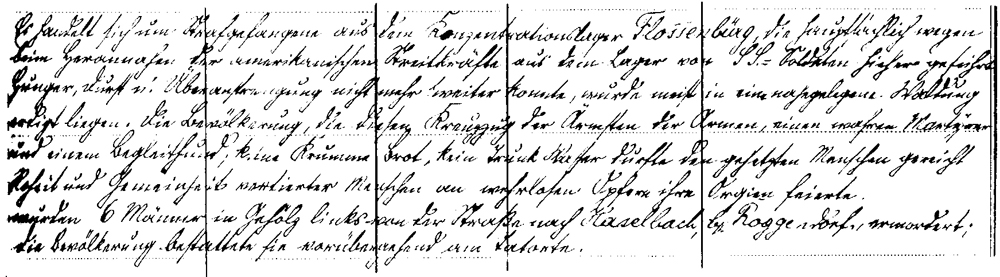 Es handelt sich um Strafgefangene aus dem Konzentrationslager Flossenbürg, die hauptsächlich wegen
beim Herannahen der amerikanischen Streitkräfte aus dem Lager von SS.-Soldaten hieher geführt
Hunger, Durst u. Überanstrengung nicht mehr weiter konnte, wurde meist in eine nahegelegene Waldung
liegen. Die Bevölkerung, die diesen Kreuzzug der Ärmsten der Armen, einen wahren Märtyrer
und einem Begleithund, keine Krumme Brot, kein Trunk Wasser durfte den gehetzten Menschen gereicht
Roheit und Gemeinheit vertierter Menschen an wehrlosen Opfern ihre Orgien feierte.
wurden 6 Männer in Gehölz links von der Straße nach Haselbach, ermordert;
die Bevölkerung bestattete sie vorübergehend am Tatorte.